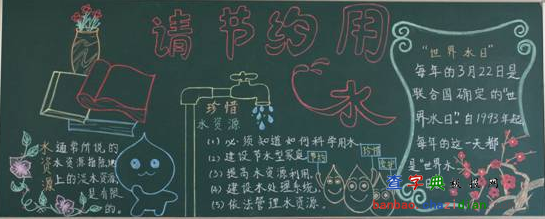 请节约用
水
珍惜
水资源
(1)必须知道如何科学用水
(2)建设节水型家庭
(3)提高水资源利用
(4)建设水处理系统
(5)依法管理水资源
水资源
通常所说的
水资源指陆地
上的淡水资源
是有限
的
珍惜
"世界水日"
每年的3月22日是
联合国确定的"世
界水日"自1993年起
每年的这一天都
是"世界水
查字典